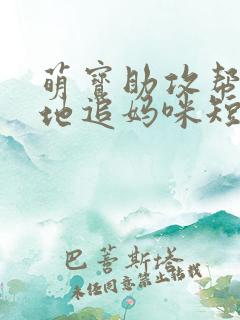 萌宝助攻帮
地追妈咪短
巴菩斯塔
未经同意禁止转载